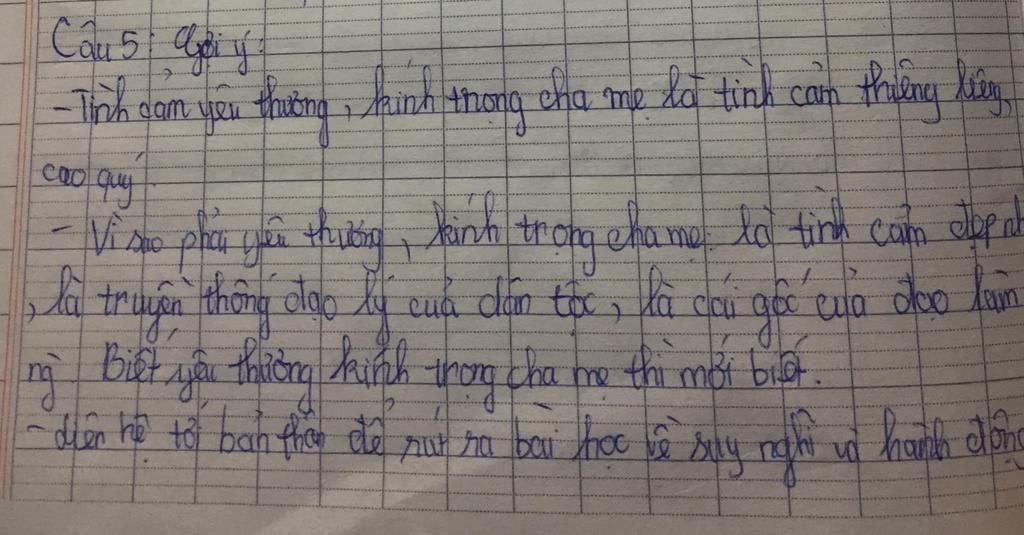 Câu 5: Gợi ý:
- Tình cảm yêu thương, kính trọng cha mẹ là tình cảm thiêng liêng,
cao quý
- Vì sao phải yêu thương, kính trọng cha mẹ: là tình cảm đẹp
, là truyền thống đạo lý của dân tộc, là cái gốc của đạo làm
ng. Biết yêu thương kính trọng cha mẹ thì mới biết.
- liên hệ tới bản thân để rút ra bài học về suy nghĩ và hành động